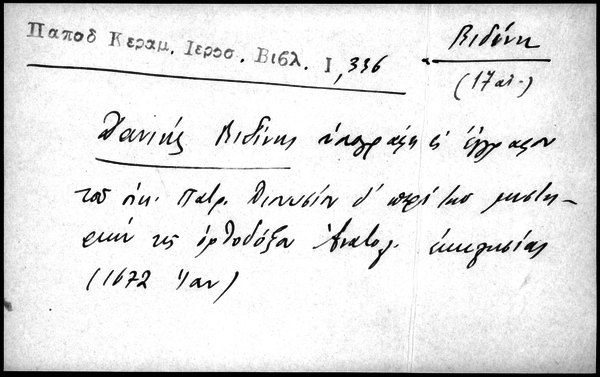 Παποδ Κεραμ. Ιεροσ. Βιβλ. Ι, 336
Βιδύνη
(17 αι.)
Δανιήλ Βιδίνης υπογράφει έγγραφον
του οικ. Πατρ. Διονυσίου δ' περί των μυστη-
ρίων της ορθοδόξου Ανατολ. εκκλησίας
(1672 Ιαν)